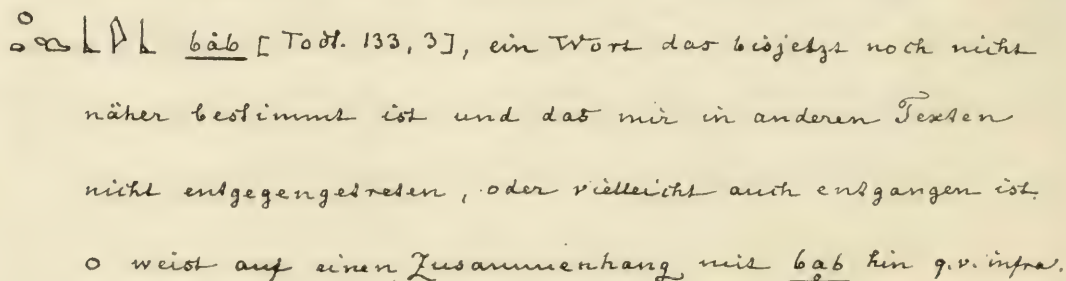 𓃀𓇋𓃀 båb [Todt. 133, 3], ein Wort das bisjetzt noch nicht
näher bestimmt ist und das mir in anderen Texten
nicht entgegengetreten, oder vielleicht auch entgangen ist.
o weist auf einen Zusammenhang mit bab hin q.v. infra.